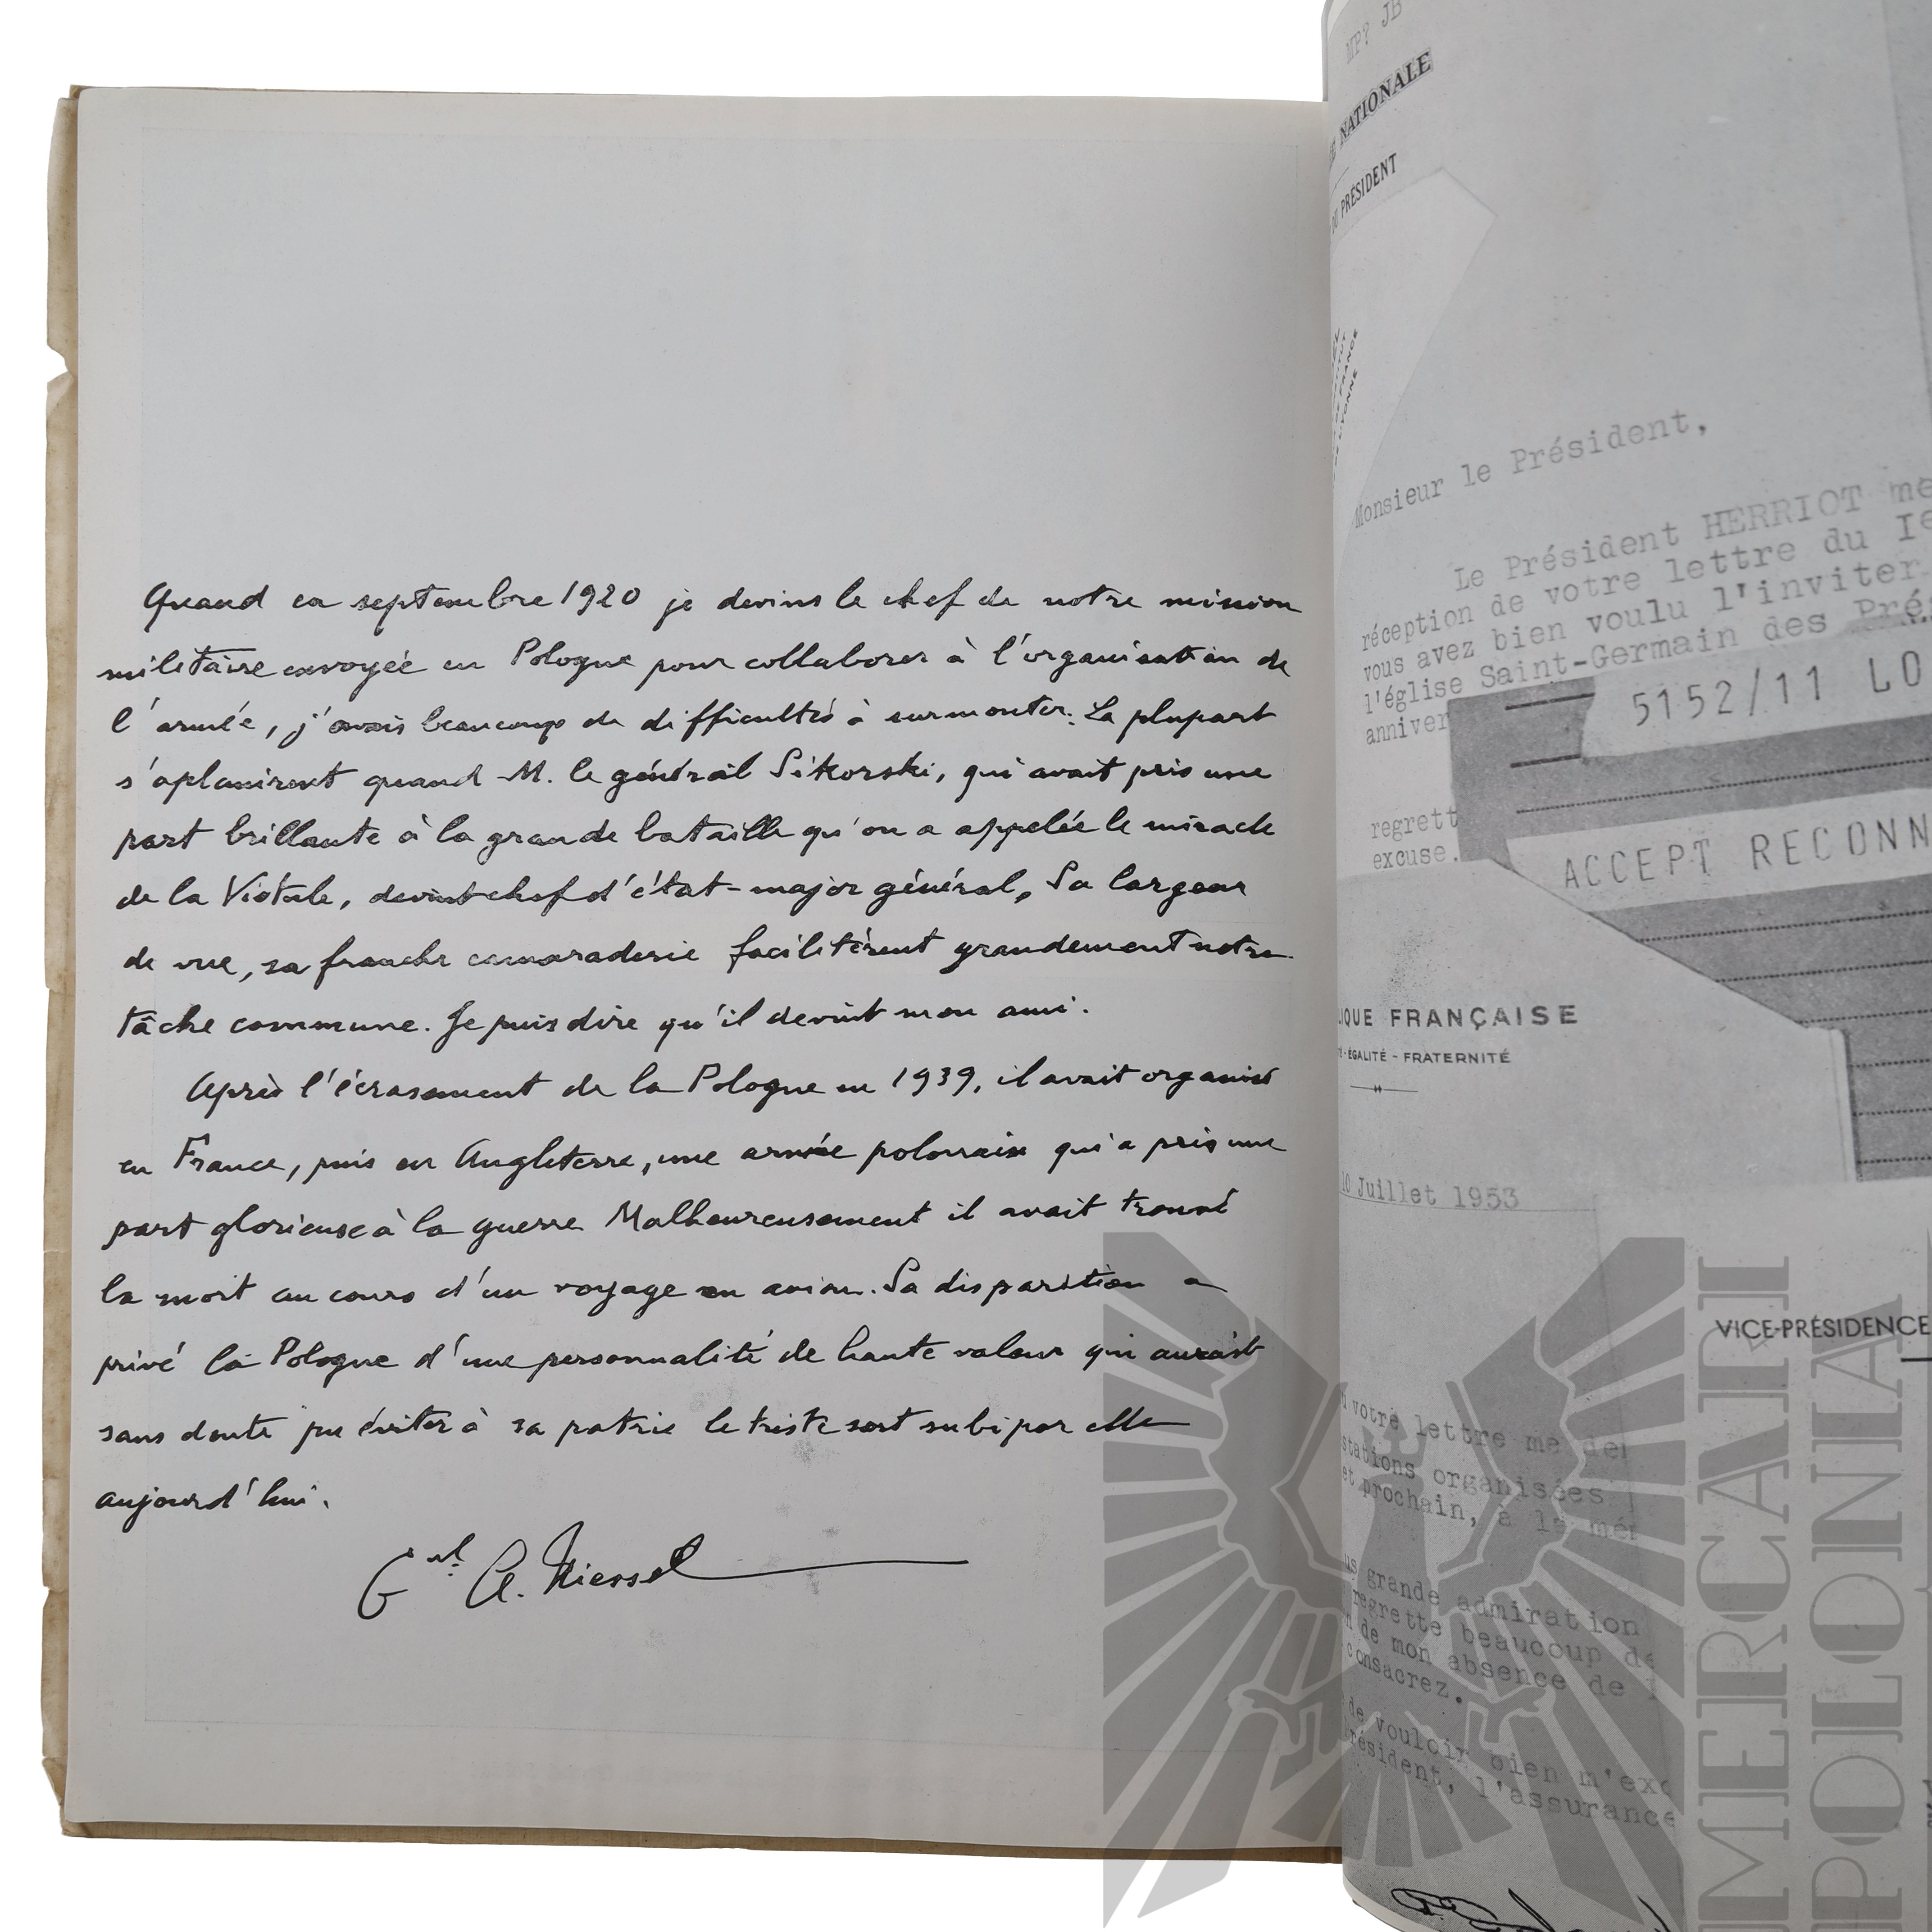 Quand en septembre 1920 je devins le chef de notre mission
militaire envoyée en Pologne pour collaborer à l'organisation de
l'armée, j'avais beaucoup de difficultés à surmonter. La plupart
s'aplanirent quand M. le général Sikorski, qui avait pris une
part brillante à la grande bataille qu'on a appelée le miracle
de la Vistule, devint chef d'état-major général. Sa largeur
de vue, sa franche camaraderie facilitèrent grandement notre
tâche commune. Je puis dire qu'il devint mon ami.
Après l'écrasement de la Pologne en 1939, il avait organisé
en France, puis en Angleterre, une armée polonaise qui a pris une
part glorieuse à la guerre Malheureusement il avait trouvé
la mort au cours d'un voyage en avion. Sa disparition a
privé la Pologne d'une personnalité de haute valeur qui aurait
sans doute pu éviter à sa patrie le triste sort subi par elle
aujourd'hui.
Gal. A. Niessel
MP? JB
NATIONALE
DU PRÉSIDENT
Monsieur le Président,
Le Président HERRIOT me
réception de votre lettre du
vous avez bien voulu l'inviter
l'église Saint-Germain des Pré
anniver
5152/11 LO
regrett
excuse.
ACCEPT RECONN
IQUE FRANÇAISE
ÉGALITÉ - FRATERNITÉ
10 Juillet 1953
VICE-PRÉSIDENCE
votre lettre me de
stations organisées
et prochain, à la mé
us grande admiration
regrette beaucoup de
n de mon absence de l
consacrez.
de vouloir bien m'exc
résident, l'assurance
IMERCANI
POLONIA